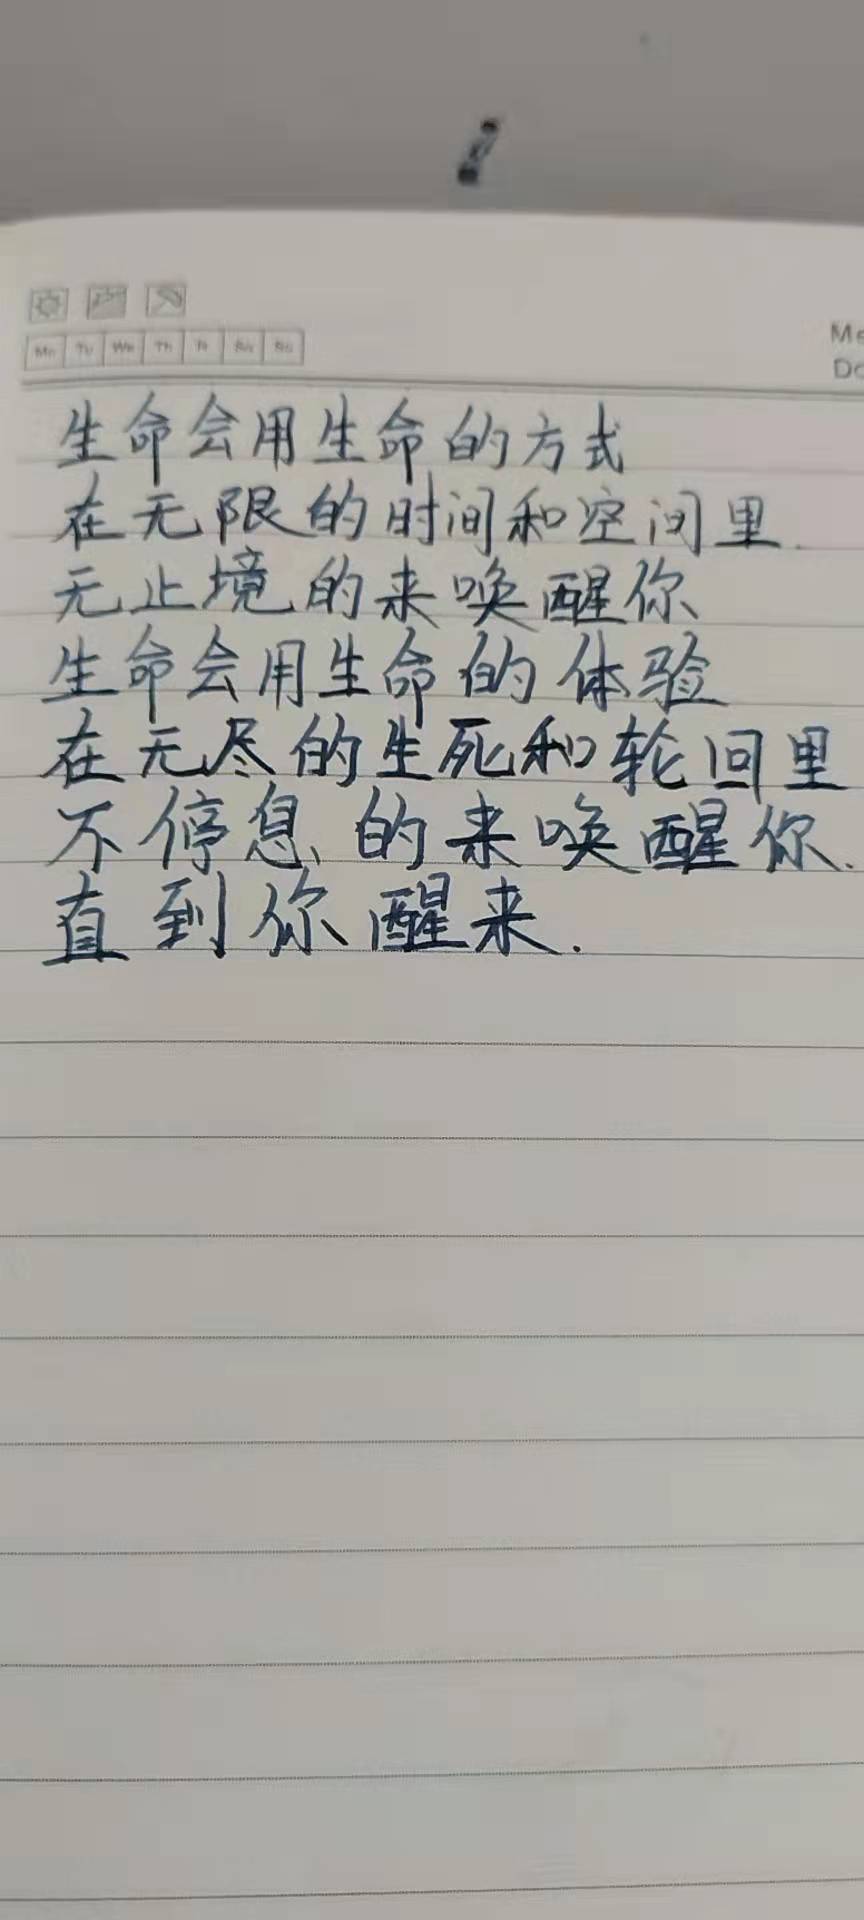 Mo Tu We Th Fr Sa Su
Me
Da
生命会用生命的方式
在无限的时间和空间里.
无止境的来唤醒你
生命会用生命的体验
在无尽的生死和轮回里
不停息的来唤醒你.
直到你醒来.